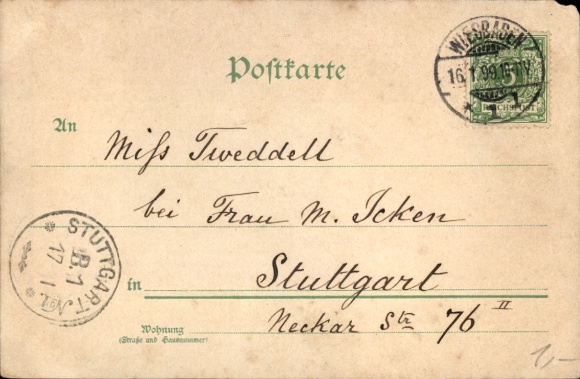 Postkarte
WIESBADEN
16.1.99.
1
REICHSPOST
An
Miss Tweddell
bei Frau M. Icken
in Stuttgart
Neckar Str 76 II
STUTTGART No1.
B.1
17 I
Wohnung
(Straße und Hausnummer)
1,-